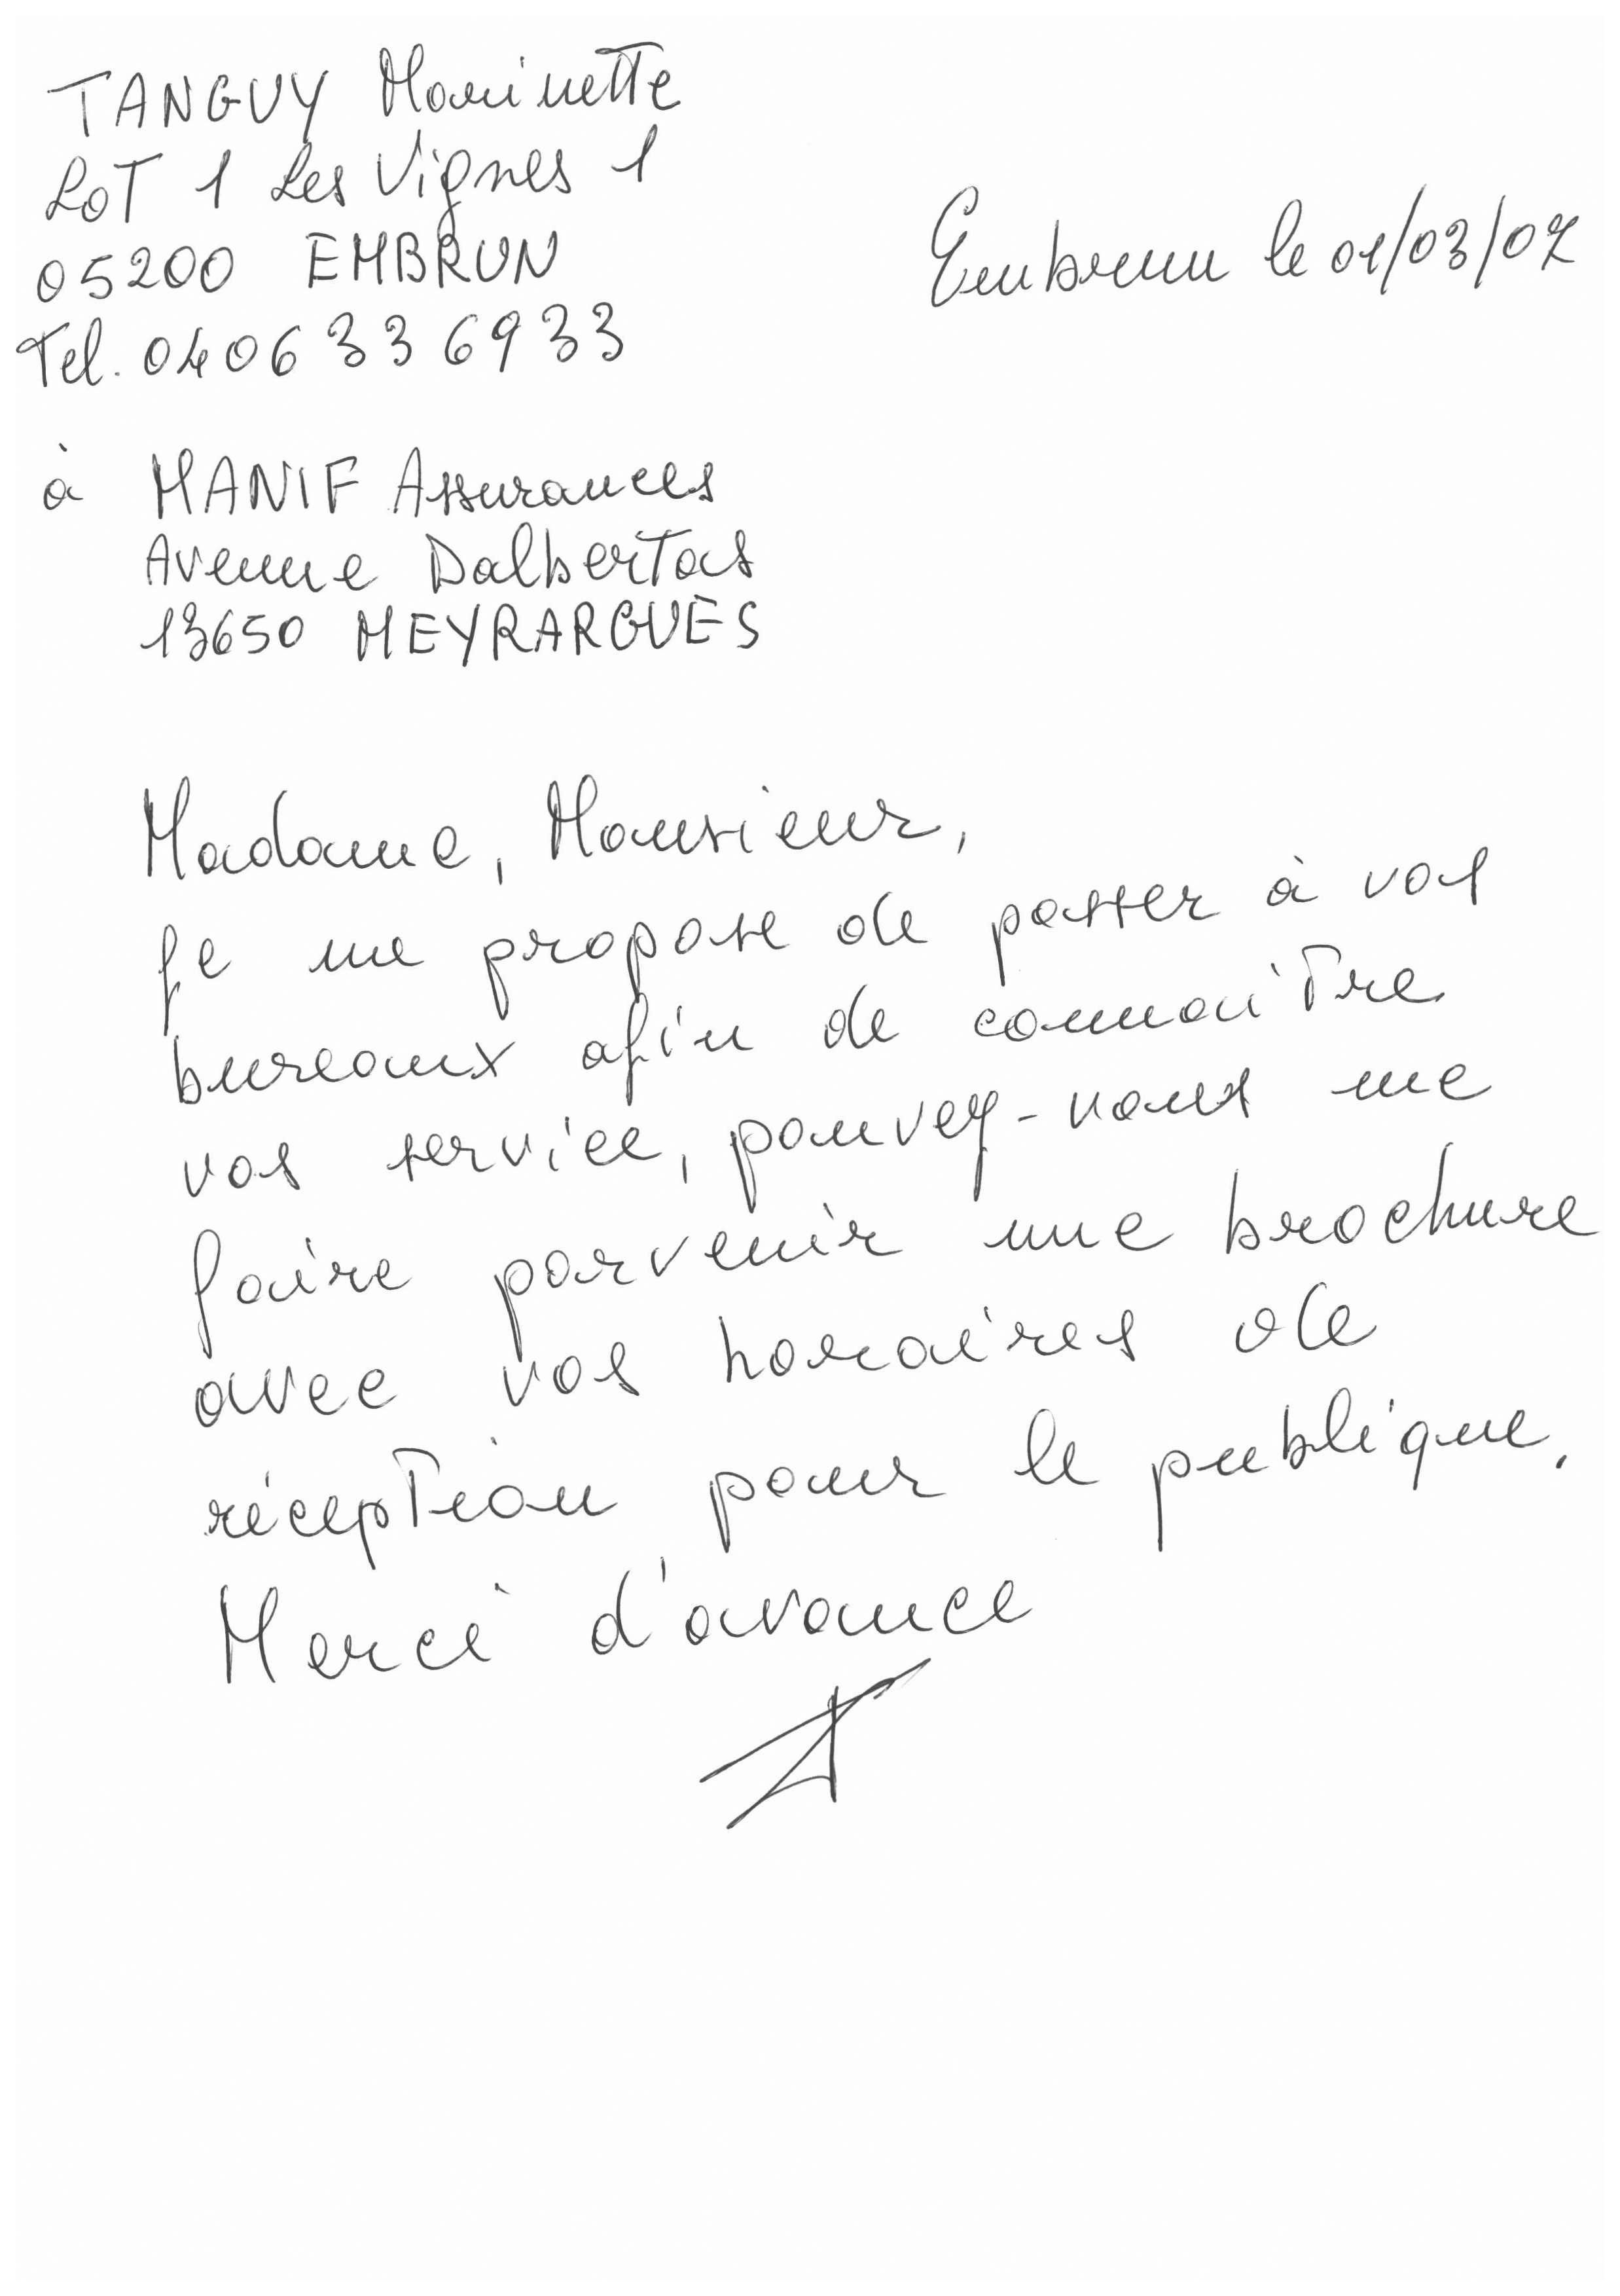 TANGUY Marinette
LOT 1 Les Vignes 1
05200 EMBRUN
Tel. 0406336933
Embrun le 01/03/07
à MANIF Assurances
Avenue Dalbertas
13650 MEYRARGUES
Madame, Monsieur,
Je me propose de passer à vos
bureaux afin de connaitre
vos service, pouvez-vous me
faire parvenir une brochure
avec vos horaires de
réception pour le publique.
Merci d'avance